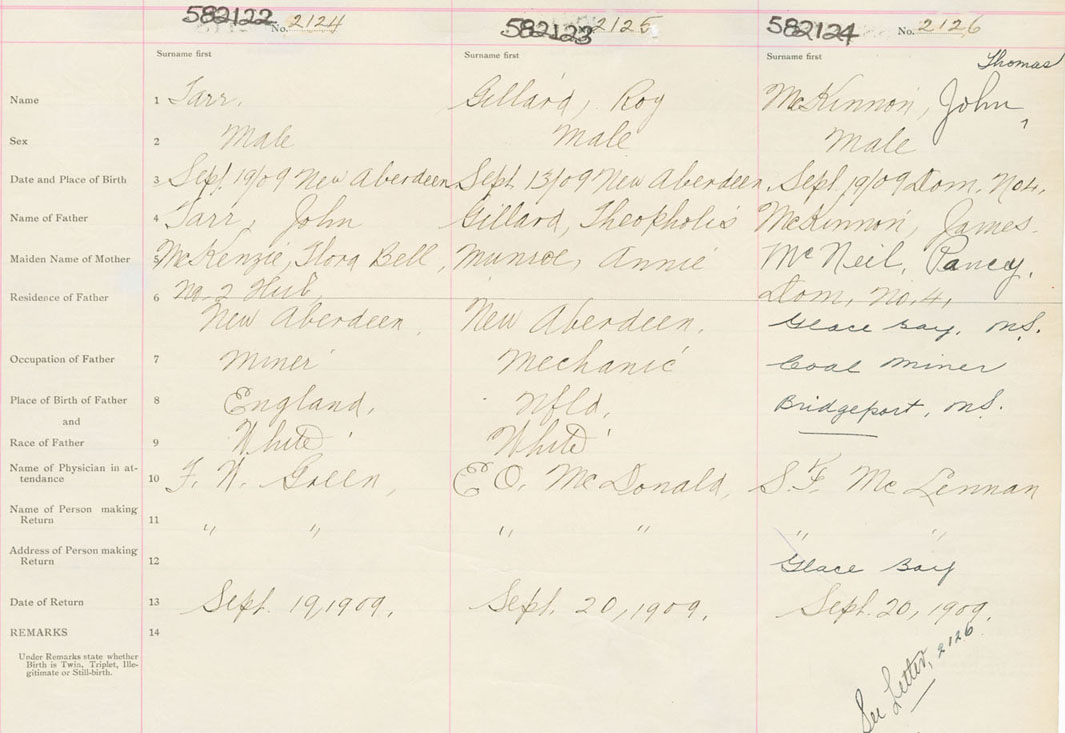 582122 No. 2124 582123 2125 582124 No. 2126
Surname first Surname first Surname first Thomas
Name 1 Tarr. Gillard, Roy McKinnon, John
Sex 2 Male Male Male
Date and Place of Birth 3 Sept 19/09 New Aberdeen Sept 13/09 New Aberdeen, Sept 19/09 Dom. No4,
Name of Father 4 Tarr, John Gillard, Theopholis McKinnon, James.
Maiden Name of Mother 5 McKenzie, Flora Bell, Munroe, Annie McNeil, Pancy,
Residence of Father 6 No. 2 Hub Dom, No. 4,
New Aberdeen, New Aberdeen, Glace Bay, N.S.
Occupation of Father 7 Miner Mechanic Coal Miner
Place of Birth of Father 8 England, Nfld, Bridgeport, N.S.
and
Race of Father 9 White White
Name of Physician in at-
tendance 10 F. W. Green, E O. McDonald, S. F. McLennan
Name of Person making
Return 11 " " " " " "
Address of Person making
Return 12 Glace Bay
Date of Return 13 Sept. 19, 1909. Sept. 20, 1909. Sept. 20, 1909.
REMARKS 14
Under Remarks state whether
Birth is Twin, Triplet, Ille-
gitimate or Still-birth.
See Letter, 2126